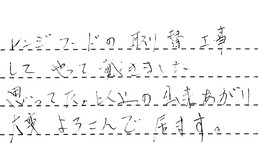 レンジフードの取り替工事
して やって戴きました
思ってた以上の出来あがり
大変よろこんで居ます。